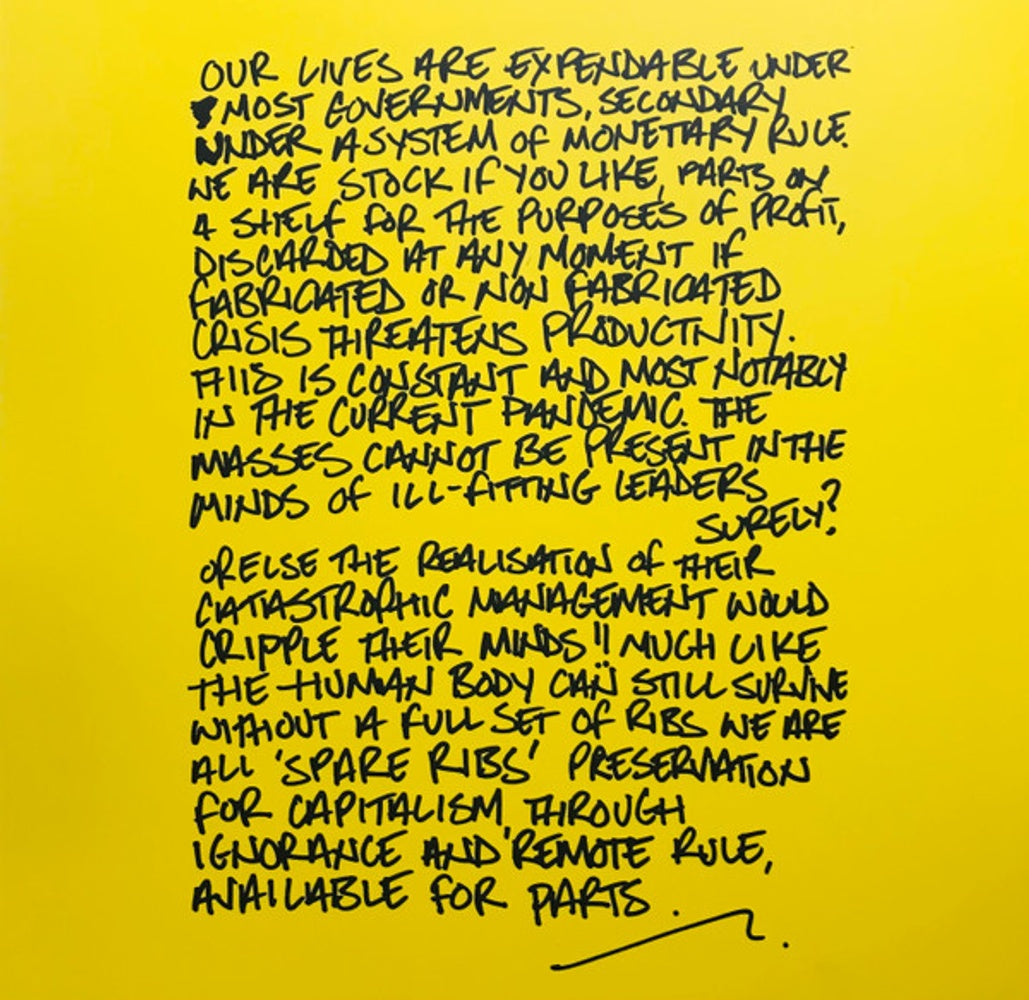 OUR LIVES ARE EXPENDABLE UNDER
MOST GOVERNMENTS, SECONDARY
UNDER A SYSTEM OF MONETARY RULE.
WE ARE STOCK IF YOU LIKE, PARTS ON
A SHELF FOR THE PURPOSES OF PROFIT,
DISCARDED AT ANY MOMENT IF
FABRICATED OR NON FABRICATED
CRISIS THREATENS PRODUCTIVITY.
THIS IS CONSTANT AND MOST NOTABLY
IN THE CURRENT PANDEMIC. THE
MASSES CANNOT BE PRESENT IN THE
MINDS OF ILL-FITTING LEADERS
SURELY?
OR ELSE THE REALISATION OF THEIR
CATASTROPHIC MANAGEMENT WOULD
CRIPPLE THEIR MINDS!! MUCH LIKE
THE HUMAN BODY CAN STILL SURVIVE
WITHOUT A FULL SET OF RIBS WE ARE
ALL 'SPARE RIBS' PRESERVATION
FOR CAPITALISM, THROUGH
IGNORANCE AND REMOTE RULE,
AVAILABLE FOR PARTS.